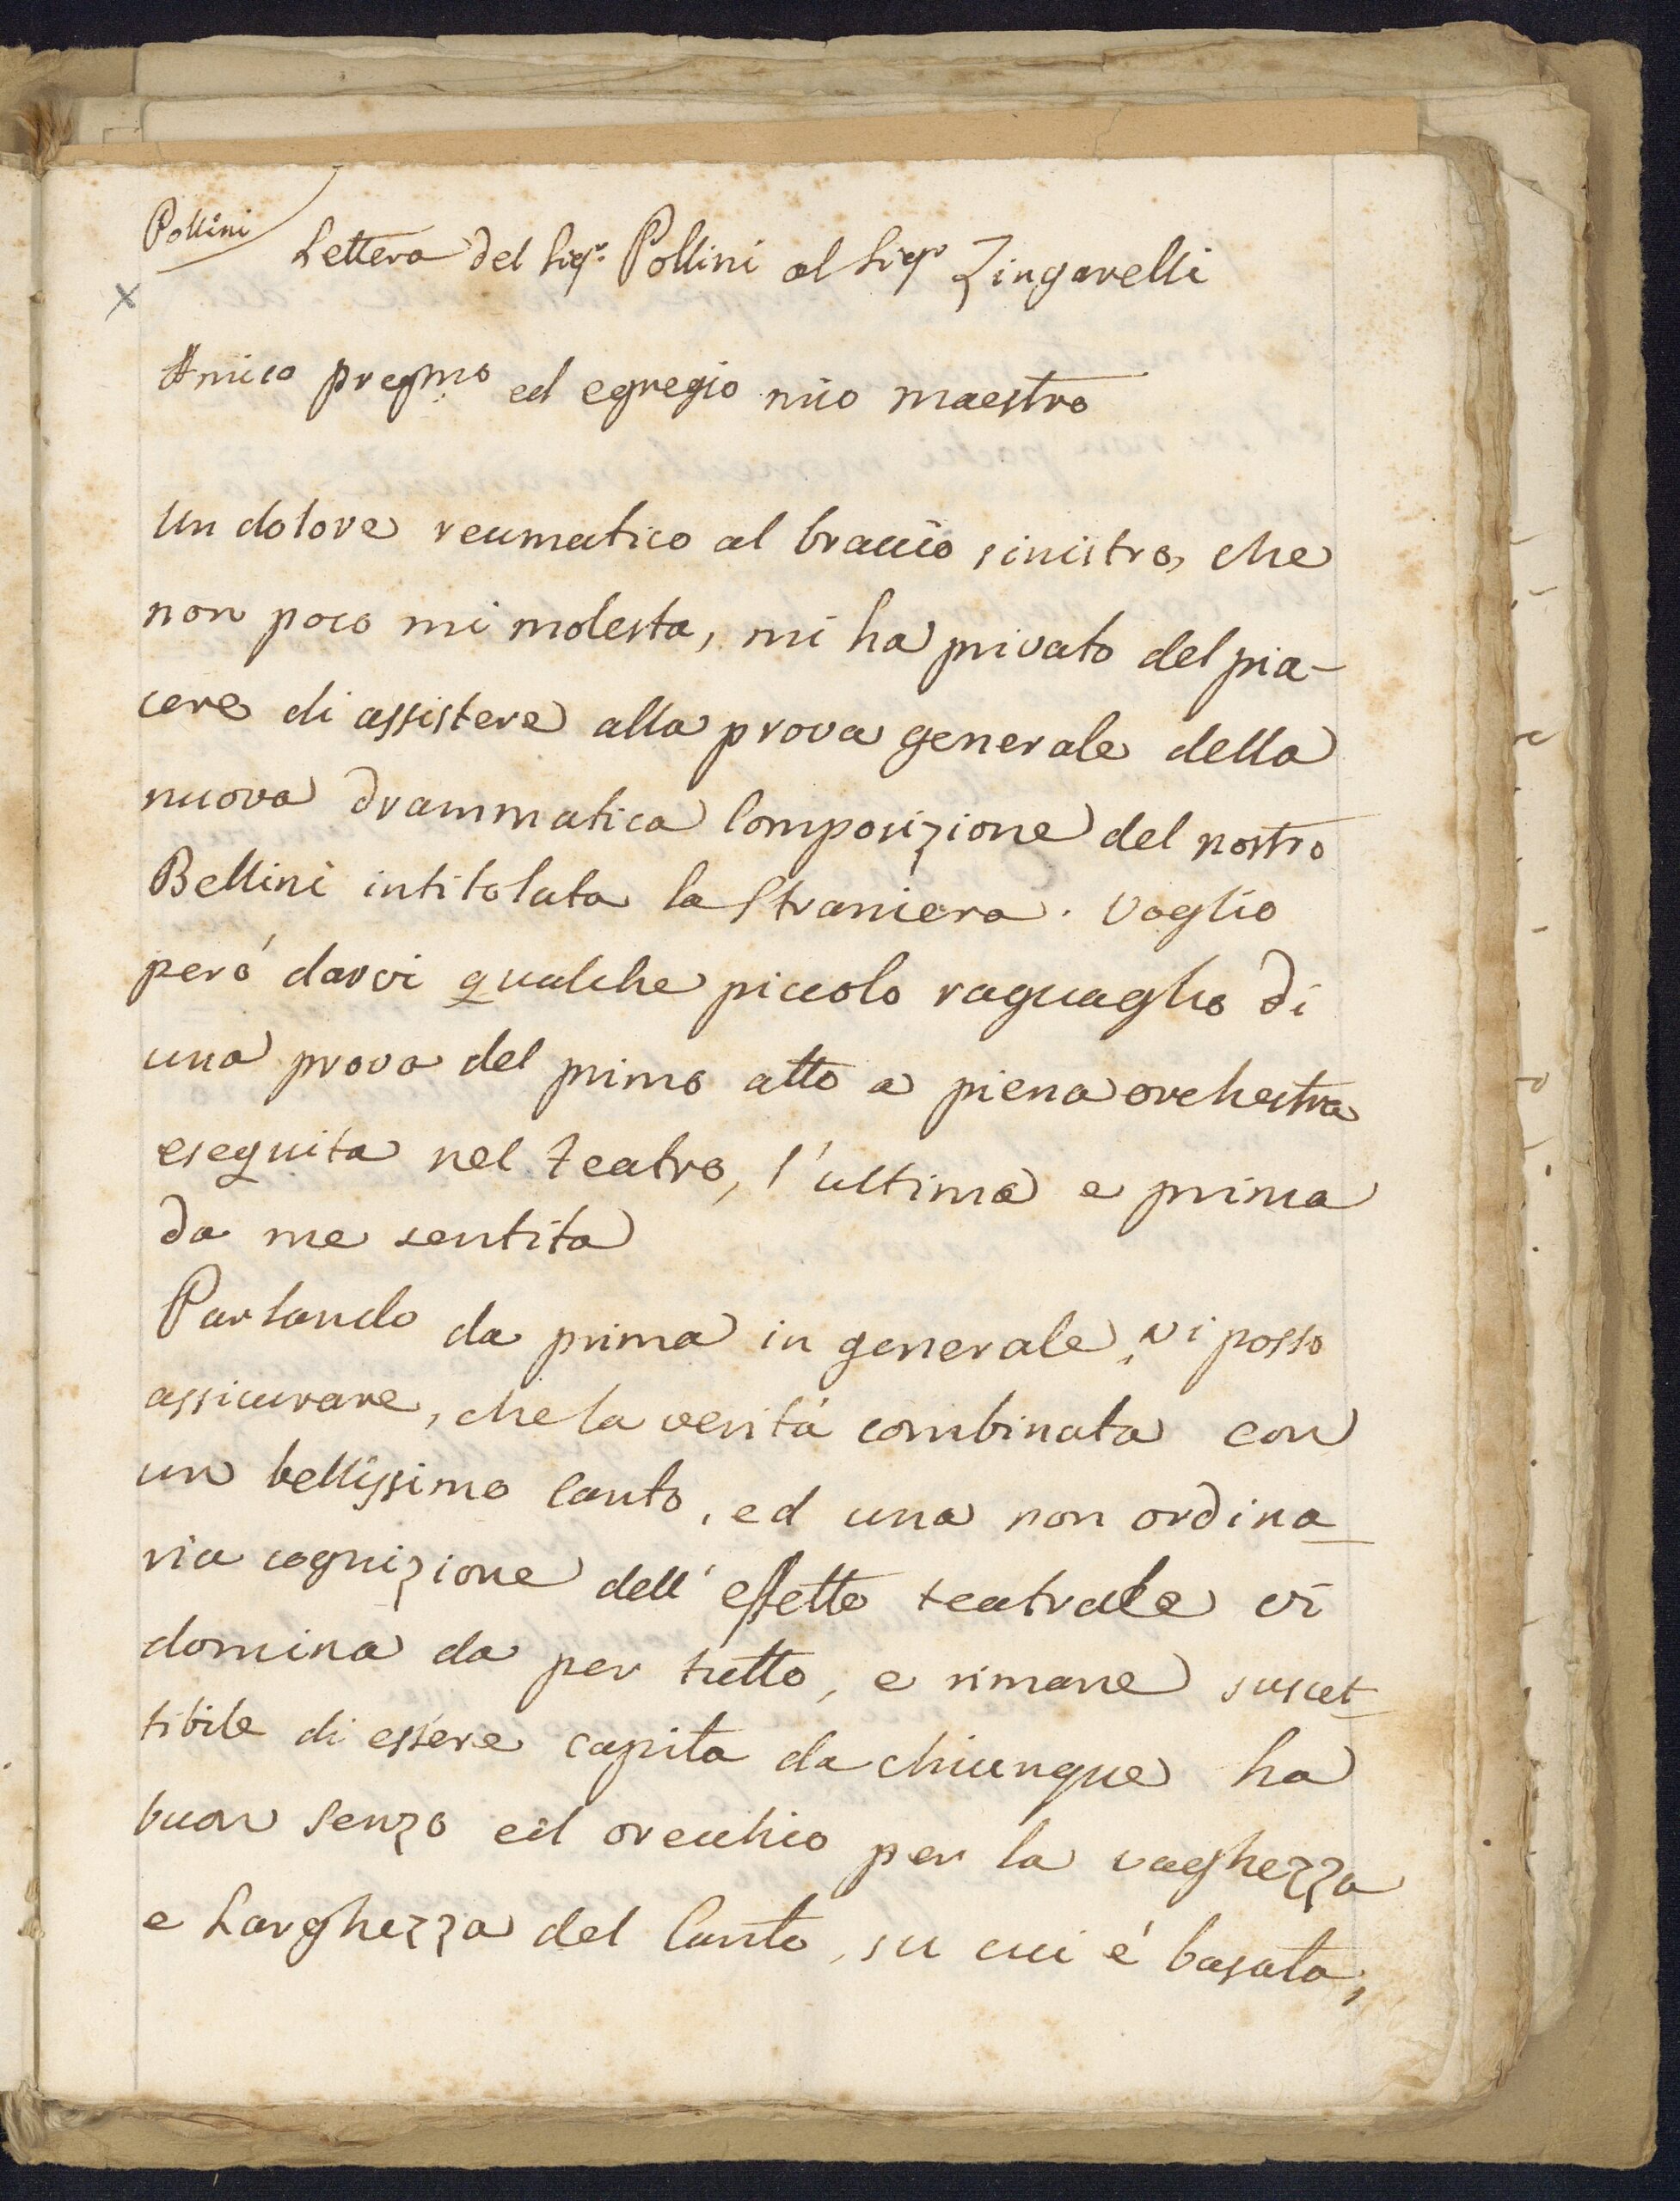 Pollini
Lettera del Sigr. Pollini al Sigr Zingarelli
x
Amico pregmo ed egregio mio maestro
Un dolore reumatico al braccio sinistro, che
non poco mi molesta, mi ha privato del pia-
cere di assistere alla prova generale della
nuova drammatica Composizione del nostro
Bellini intitolata la Straniera. Voglio
peró darvi qualche piccolo raguaglio di
una prova del primo atto a piena orchestra
eseguita nel teatro, l'ultima e prima
da me sentita
Parlando da prima in generale, vi posso
assicurare, che la veritá combinata con
un bellissimo Canto, ed una non ordina-
ria cognizione dell'effetto teatrale vi
domina da per tutto, e rimane suscet-
tibile di essere capita da chiunque ha
buon senzo ed orecchio per la vaghezza
e Larghezza del Canto, su cui é basata,